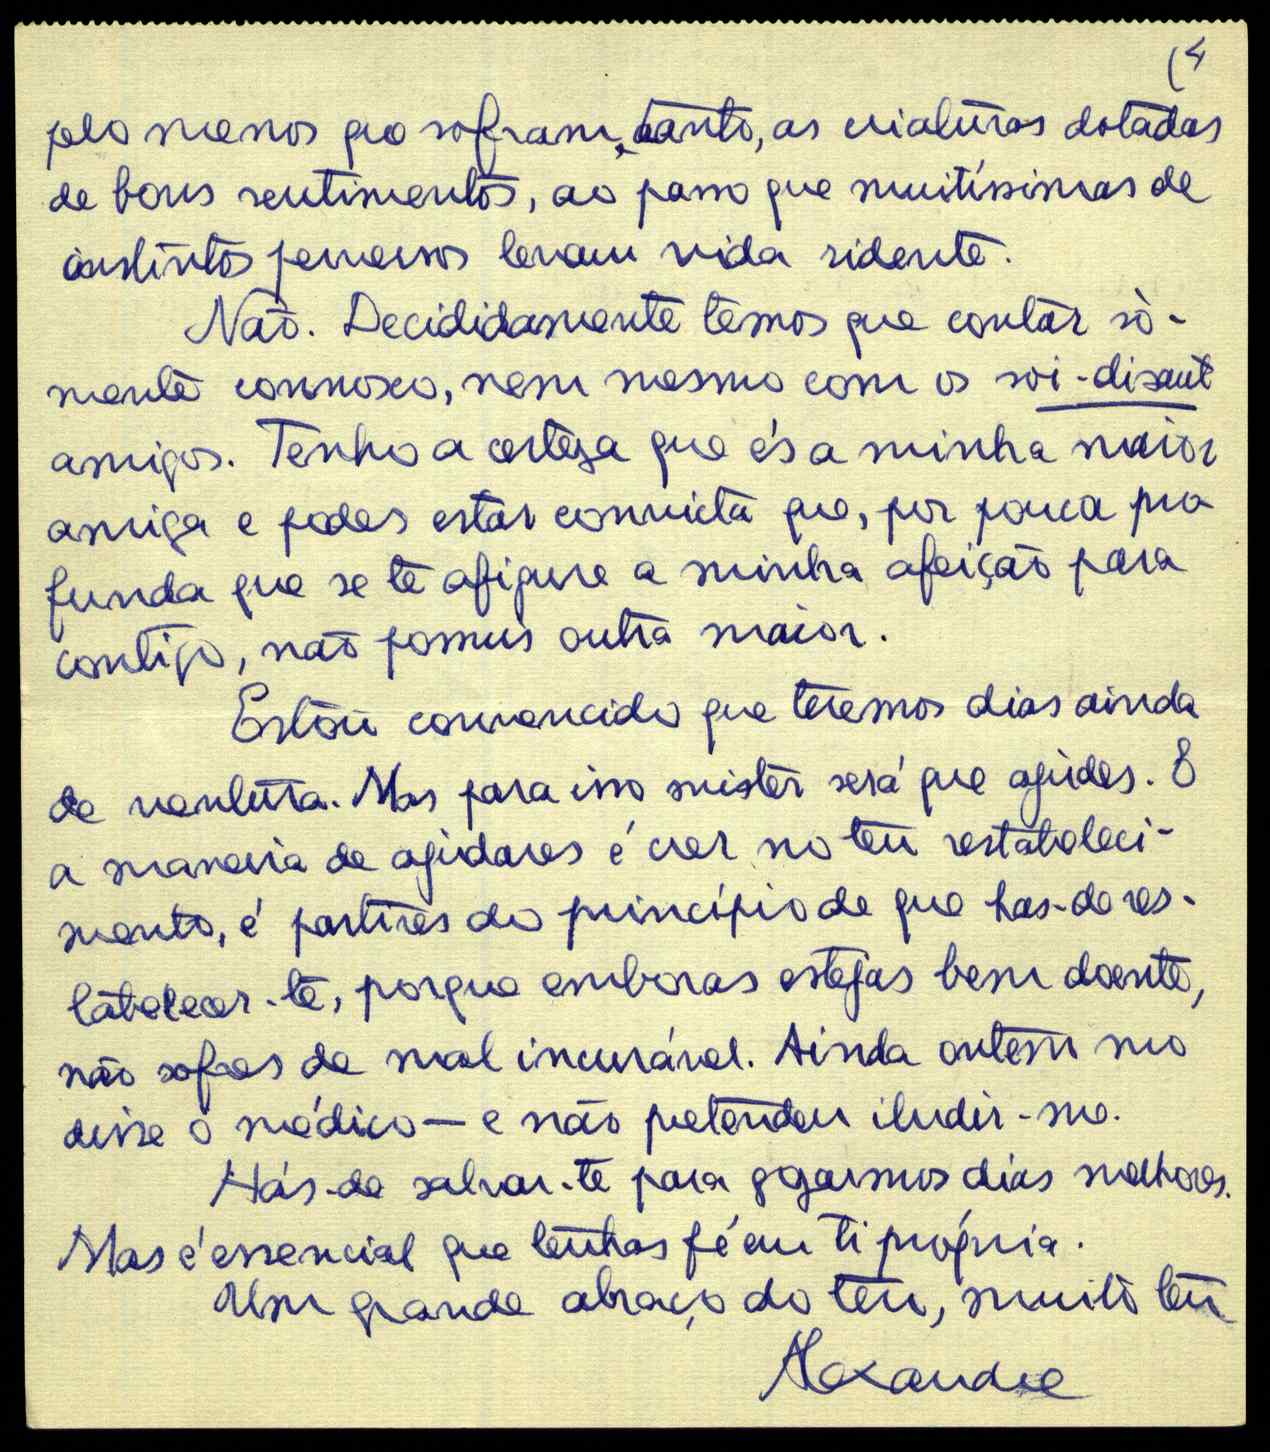 (4
pelo menos que sofram, tanto, as criaturas dotadas
de bons sentimentos, ao passo que muitíssimas de
instintos perversos levam vida ridente.
Não. Decididamente temos que contar sò-
mente connosco, nem mesmo com os soi-disant
amigos. Tenho a certeza que és a minha maior
amiga e podes estar convicta que, por pouca pro
funda que se te afigure a minha afeição para
contigo, não possuis outra maior.
Estou convencido que teremos dias ainda
de ventura. Mas para isso mister será que ajudes. E
a maneira de ajudares é crer no teu restabeleci-
mento, é partires do princípio de que has-de res-
tabelecer-te, porque emboras estejas bem doente,
não sofres de mal incurável. Ainda ontem mo
disse o médico — e não pretendeu iludir-me.
Hás-de salvar-te para gozarmos dias melhores.
Mas é essencial que tenhas fé em ti própria.
Um grande abraço do teu, muito teu
Alexandre